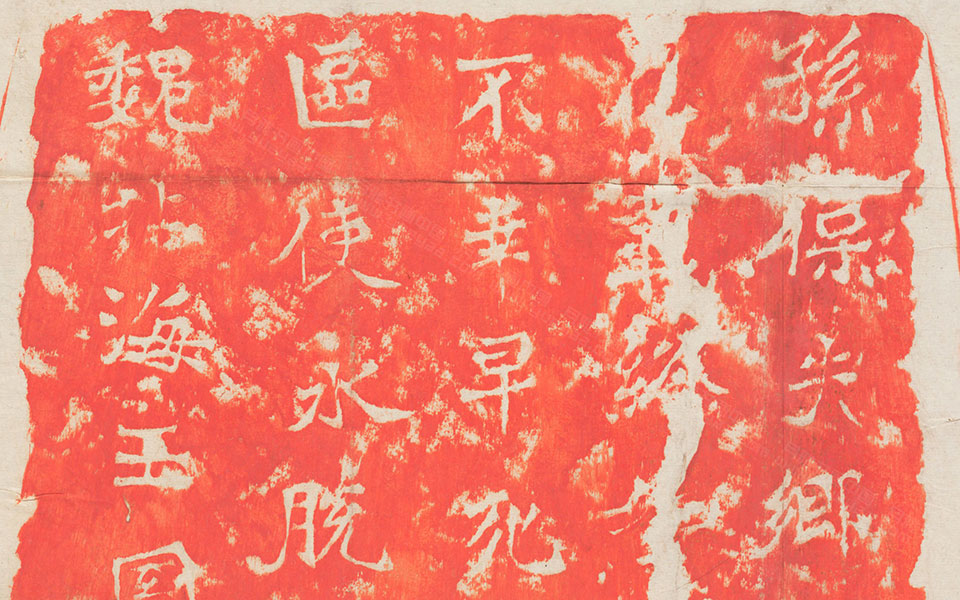 孫保失鄉
不幸早死
區使永脫
魏北海王国